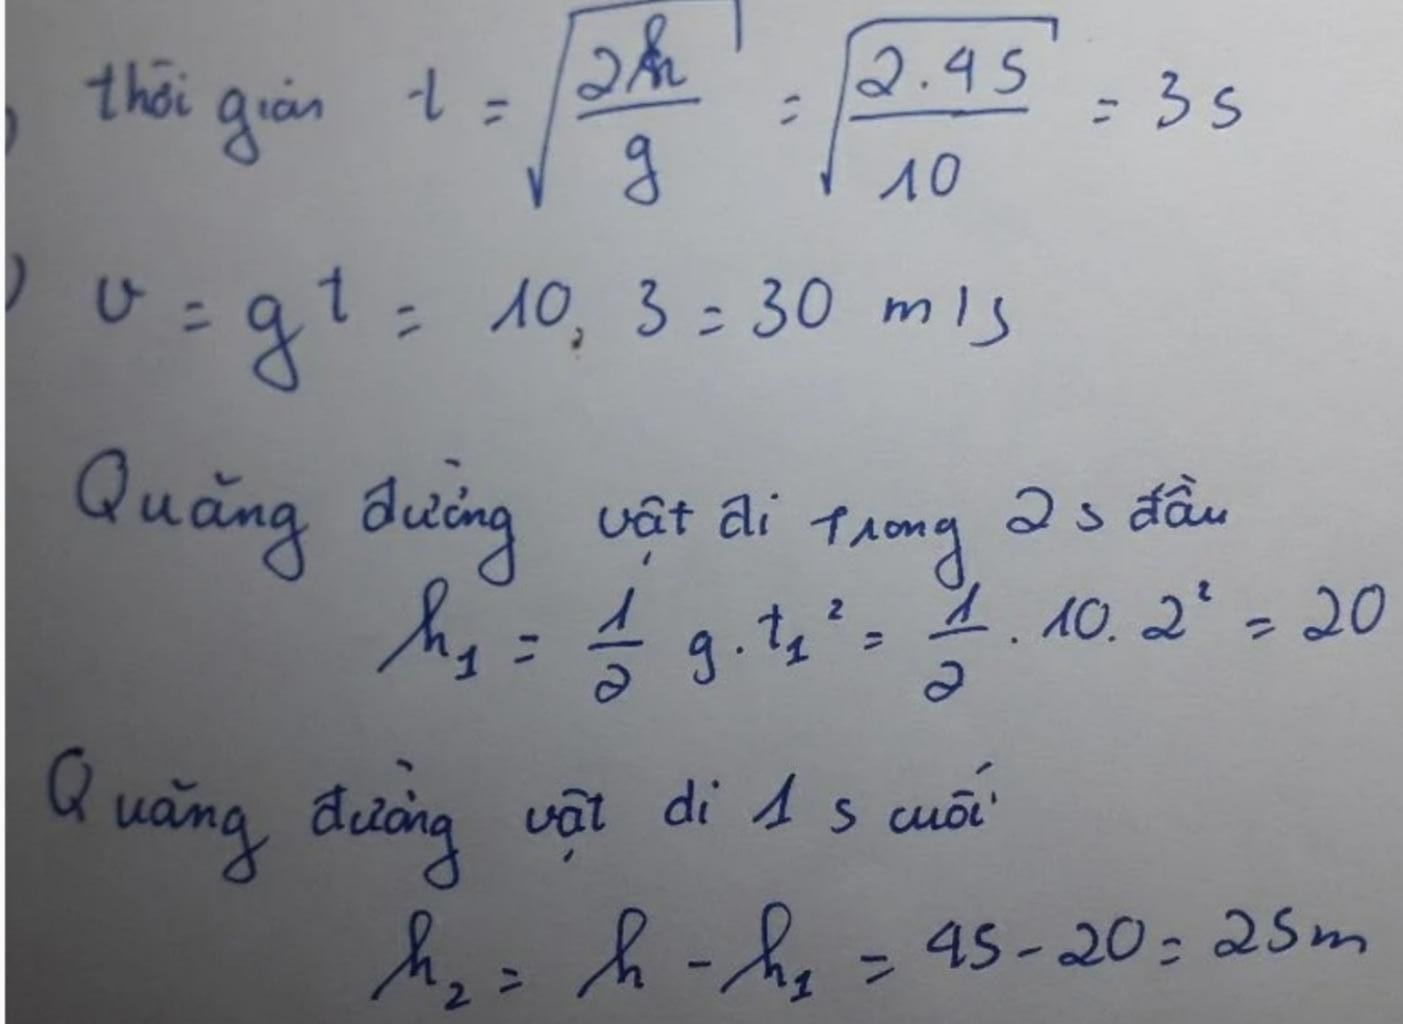 ) thời gian t = √(2h/g) = √(2.45/10) = 3s
) v = gt = 10, 3 = 30 m/s
Quãng đường vật đi trong 2s đầu
h₁ = 1/2 g.t₁² = 1/2 . 10. 2² = 20
Quãng đường vật đi 1s cuối
h₂ = h - h₁ = 45 - 20 = 25m